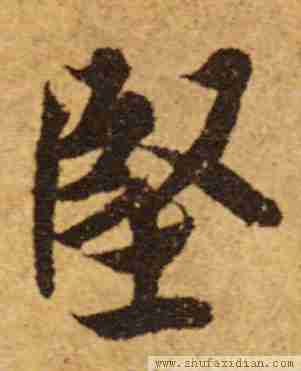 堅
www.shufazidian.com